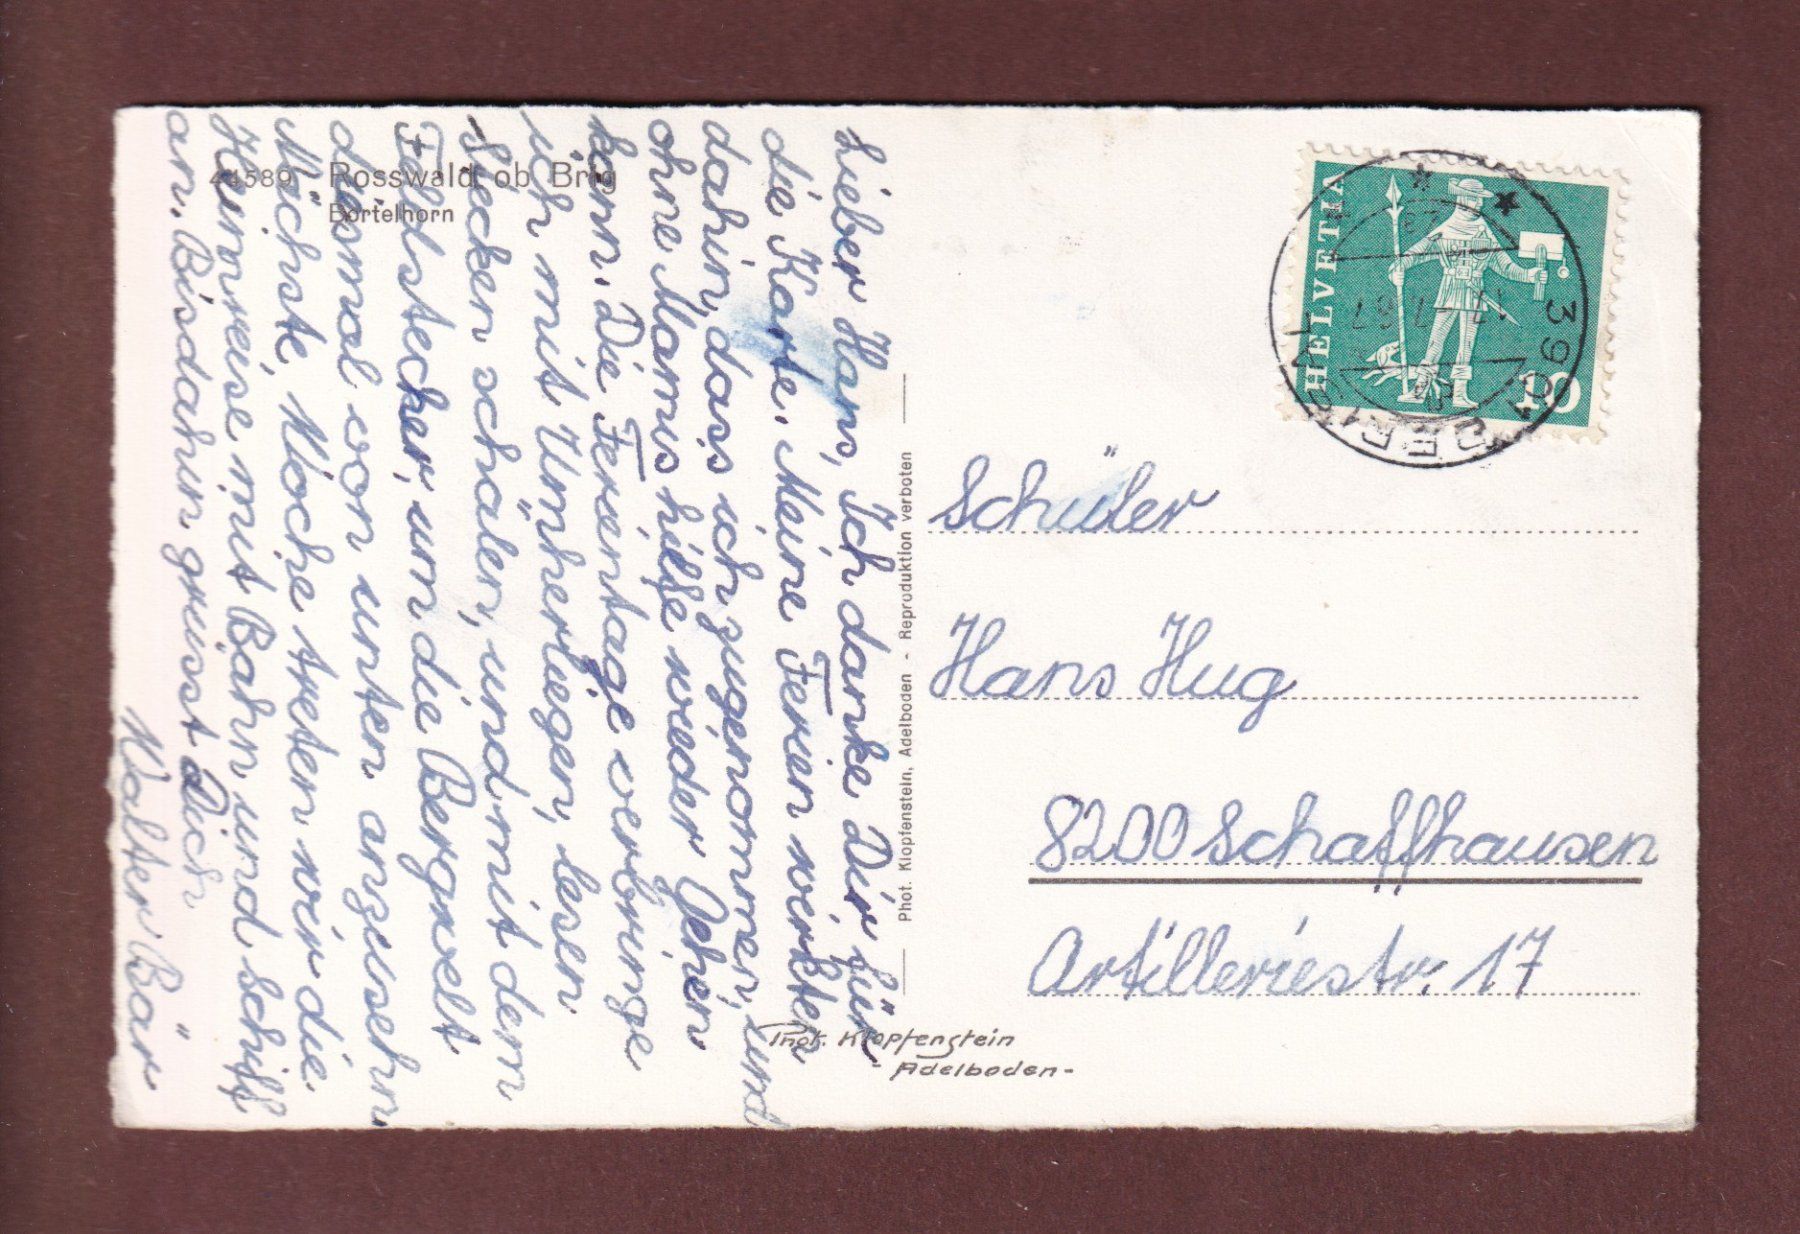 44589 Rosswald ob Brig
Bortelhorn
Lieber Hans, Ich danke Dir für
die Karte. Meine Ferien wirkten
dahin, dass ich zugenommen, und
ohne Mamis hilfe wieder gehen
kann. Die Ferientage verbringe
ich mit Umherliegen, lesen
Stecken schälen, und mit dem
Feldstecher, um die Bergwelt
diesmal von unten anzusehn
Nächste Woche treten wir die
Heimreise mit Bahn und Schiff
an. Bisdahin grüsst Dich
Walter Bär
Phot. Klopfenstein, Adelboden - Reproduktion verboten
Phot. Klopfenstein
Adelboden-
HELVETIA
10
3901
Schüler
Hans Hug
8200 Schaffhausen
Artilleriestr. 17